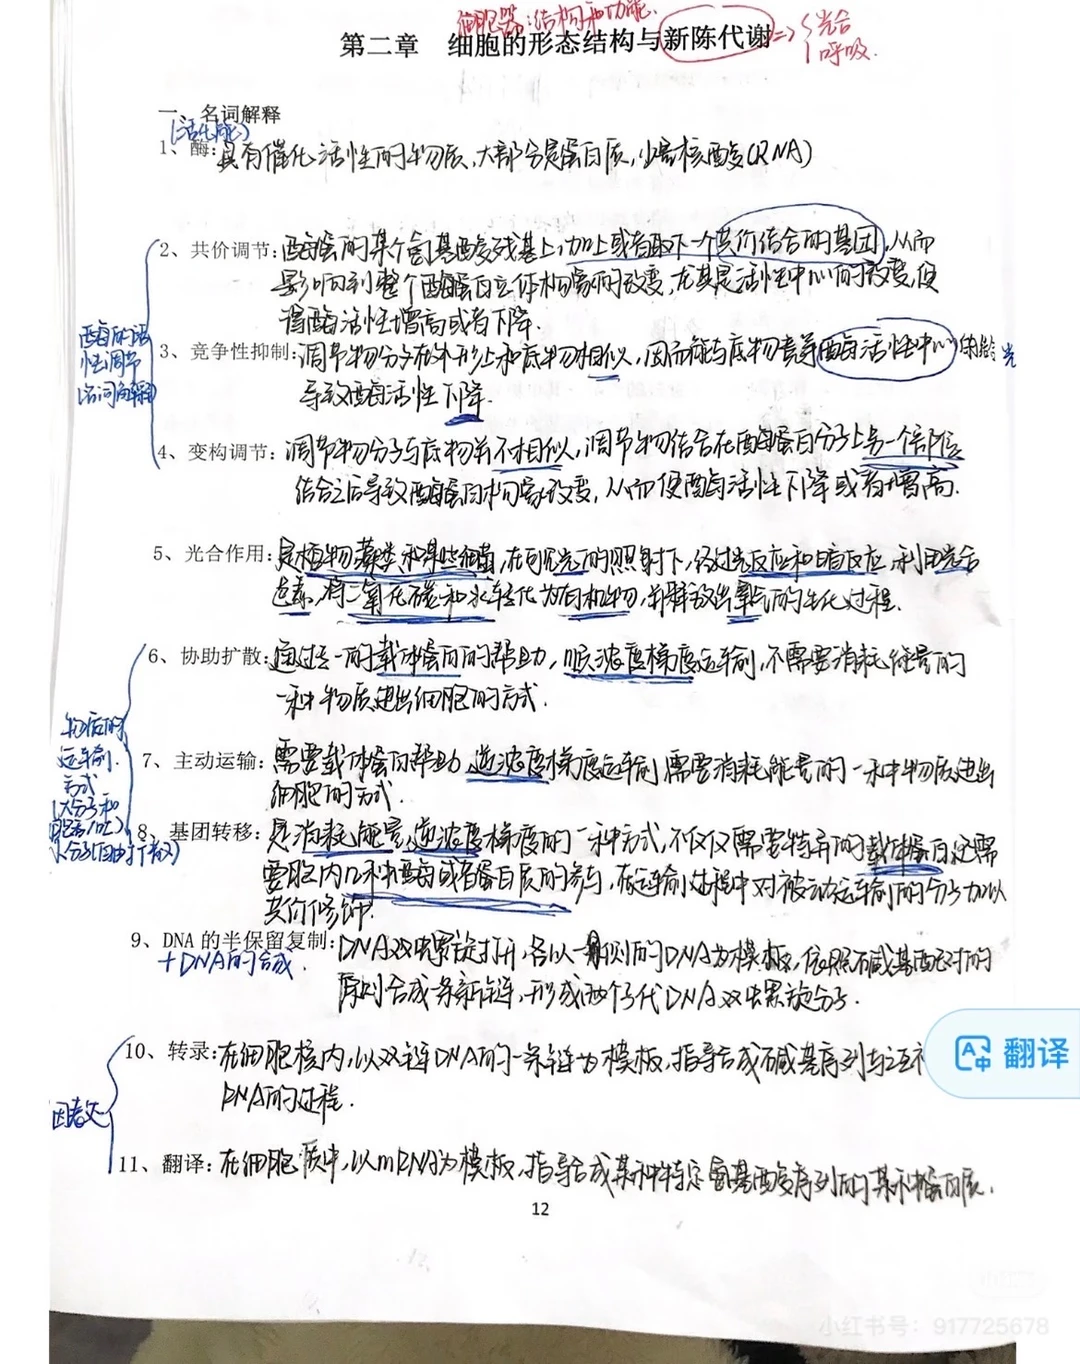 细胞器：结构和功能.
第二章 细胞的形态结构与新陈代谢 => { 光合
呼吸.
一、名词解释
(活化能)
1、酶：具有催化活性的生物质、大部分是蛋白质，少量核酸(RNA)
2、共价调节：酶蛋白的某个氨基酸残基上，加上或者取下一个共价结合的基团，从而
影响到整个酶蛋白立体构象的改变，尤其是活性中心的改变，使
得酶活性增高或者下降.
酶的活
性调节
(名词解释)
3、竞争性抑制：调节物分子在外形上和底物相似，因而能与底物竞争酶活性中心的
导致酶活性下降.
4、变构调节：调节物分子与底物并不相似，调节物结合在酶蛋白分子上另一个部位
结合之后导致酶蛋白构象改变，从而使酶活性下降或者增高.
5、光合作用：是植物藻类和某些细菌，在可见光的照射下，经过光反应和暗反应，利用光合
色素，将二氧化碳和水转化为有机物，并释放出氧气的生化过程.
6、协助扩散：通过专一的载体蛋白的帮助，顺浓度梯度运输，不需要消耗能量的
一种物质进出细胞的方式.
物质的
运输
方式
7、主动运输：需要载体蛋白帮助，逆浓度梯度运输，需要消耗能量的一种物质进出
细胞的方式.
(大分子和
胞吞/吐)
小分子(自由扩散)
8、基团转移：是消耗能量，逆浓度梯度的一种方式，不仅仅需要特异的载体蛋白，还需
要胞内几种酶或者蛋白质的参与，在运输过程中对被动运输的分子加以
共价修饰.
9、DNA 的半保留复制：DNA双螺旋打开，各以一侧的DNA为模板，依照碱基配对的
+DNA的合成.
原则合成一条新链，形成两个子代DNA双螺旋分子.
10、转录：在细胞核内，以双链DNA的一条链为模板，指导合成碱基序列与之互补
RNA的过程.
11、翻译：在细胞质中，以mRNA为模板，指导合成某种特定氨基酸序列的某种蛋白质.
12
翻译
小红书号：917725678